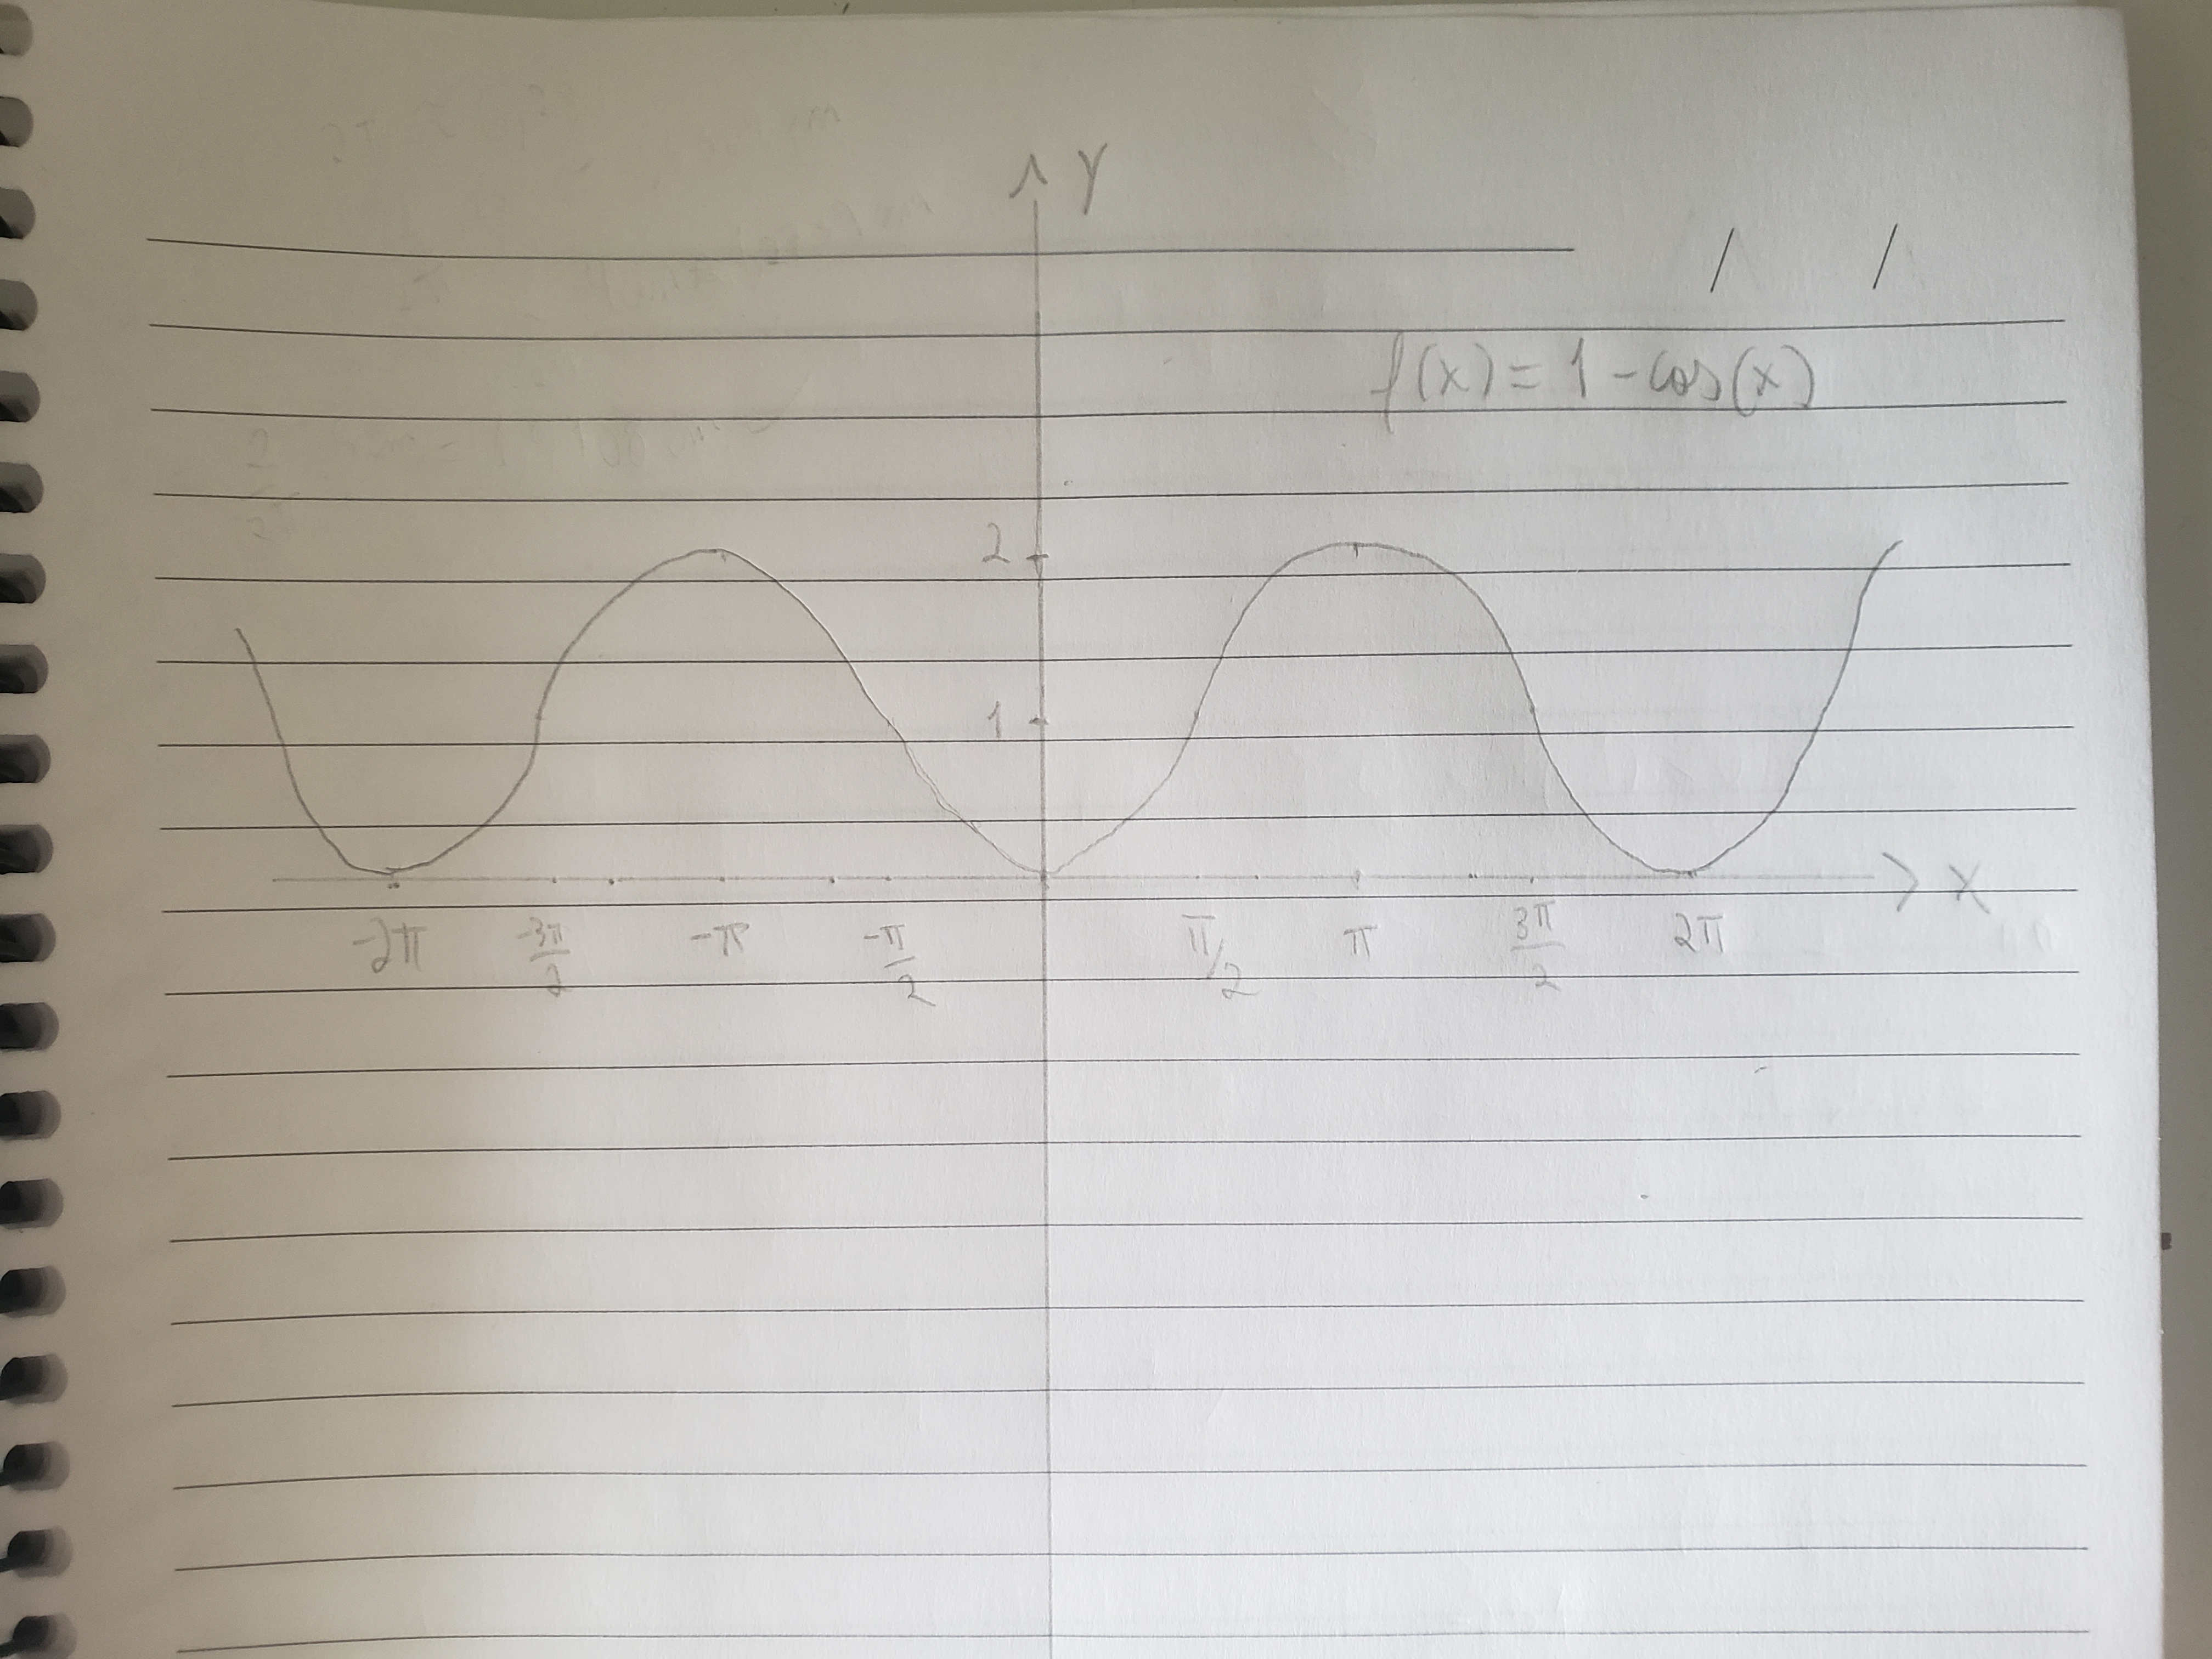 Y
f(x) = 1 - cos(x)
2
1
-2π -3π/2 -π -π/2 π/2 π 3π/2 2π
X